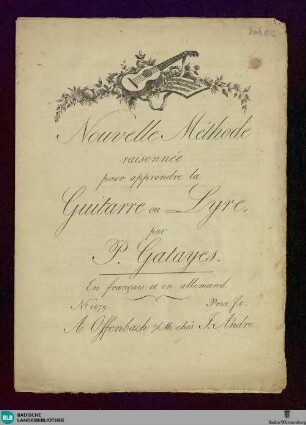 Nouvelle Méthode
raisonnée
pour apprendre la
Guitarre ou Lyre,
par
P. Gatayes.
En français et en allemand.
Nº 1679. Prix f1.
A Offenbach s/M. chés J. André.
BLB BADISCHE
LANDESBIBLIOTHEK
Baden-Württemberg